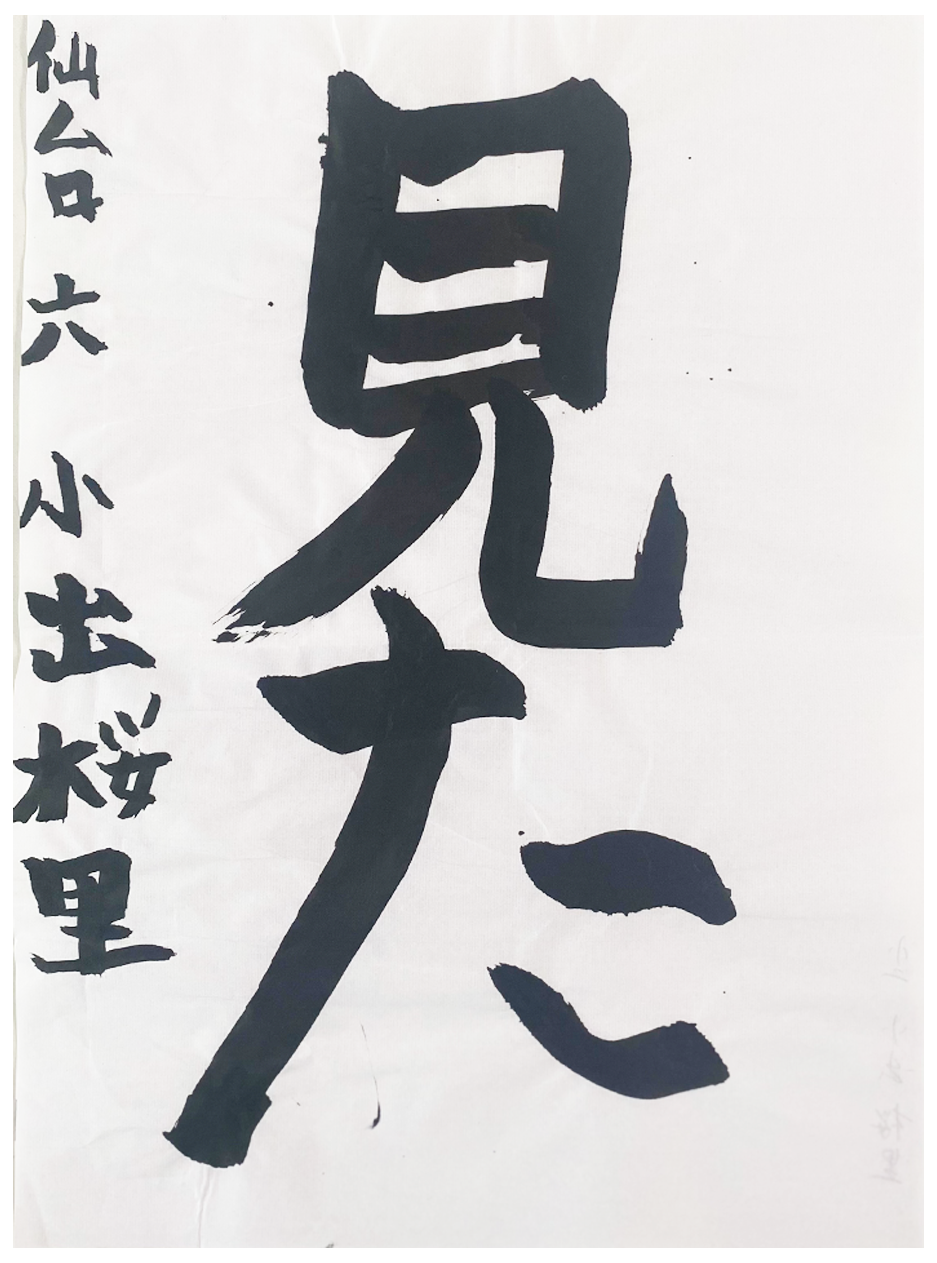 見た
仙台 六 小出桜里